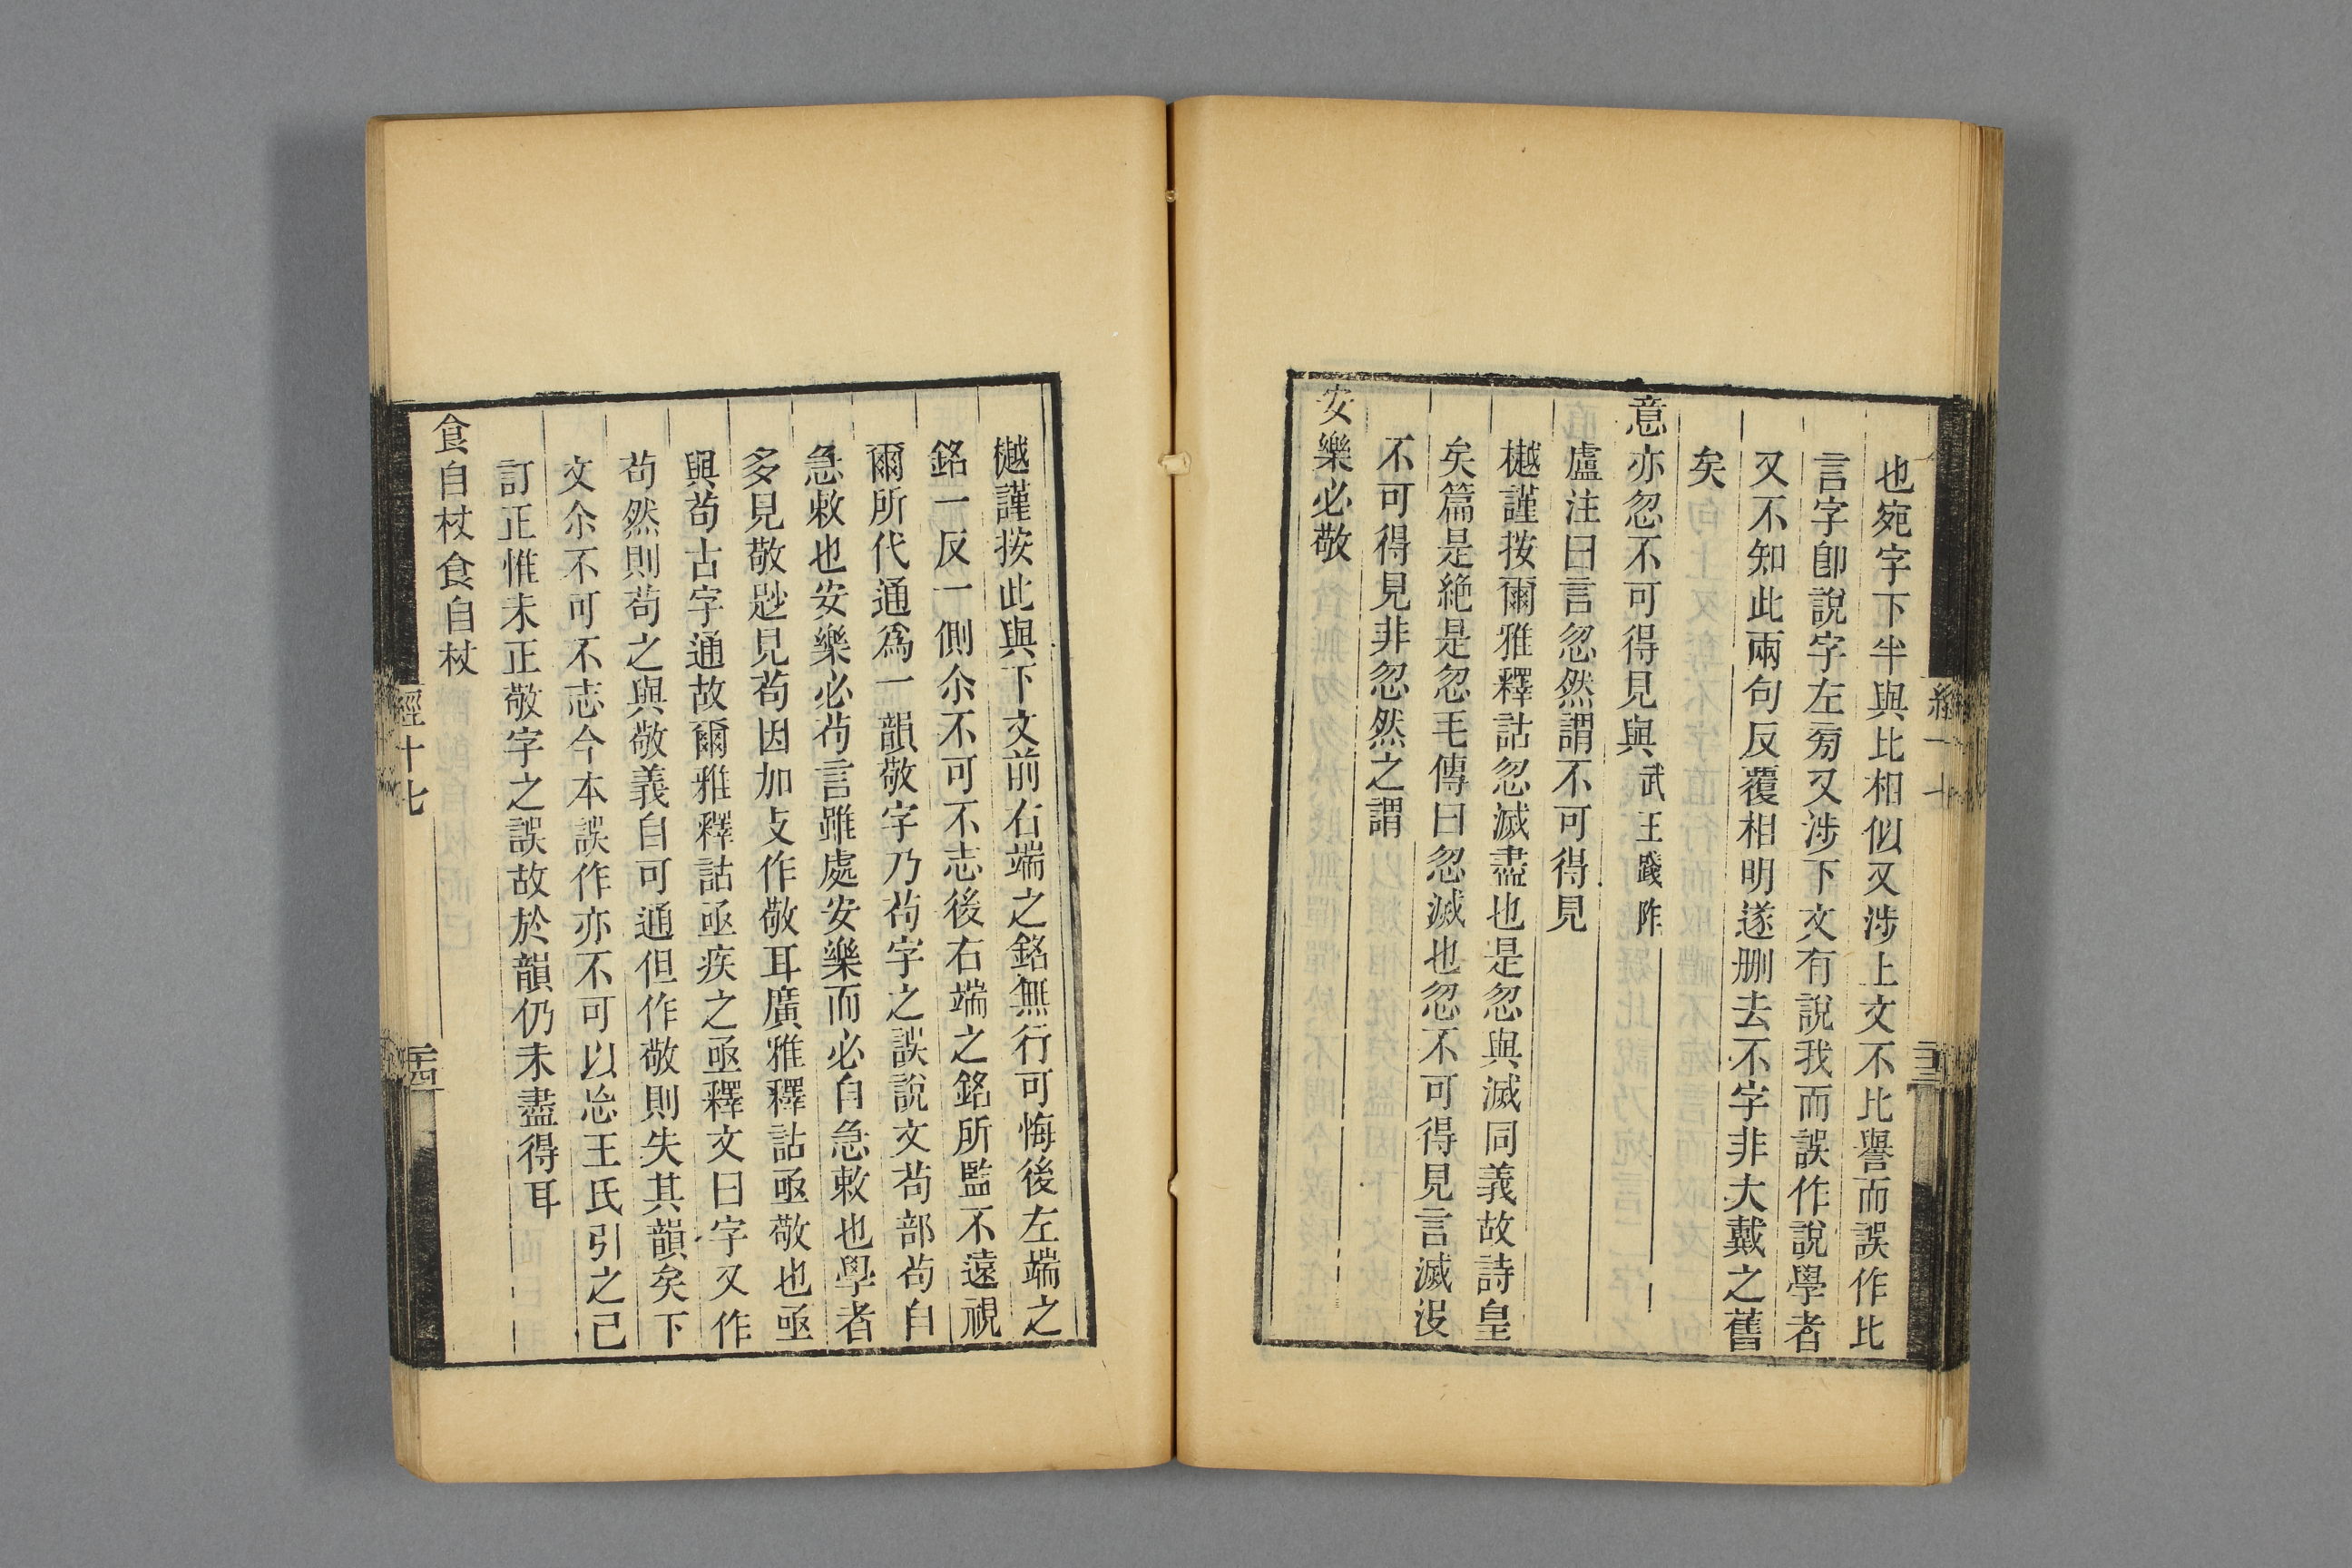 也宛字下半與比相似又涉上文不比譽而誤作比
言字卽說字左㫄又涉下文有說我而誤作說學者
又不知此兩句反覆相明遂刪去不字非大戴之舊
矣
意亦忽不可得見與武王踐阼
盧注曰言忽然謂不可得見
樾謹按爾雅釋詁忽滅盡也是忽與滅同義故詩皇
矣篇是絶是忽毛傳曰忽滅也忽不可得見言滅沒
不可得見非忽然之謂
安樂必敬
樾謹按此與下文前右端之銘無行可悔後左端之
銘一反一側尒不可不志後右端之銘所監不遠視
爾所代通爲一韻敬字乃茍字之誤說文茍部茍自
急敕也安樂必茍言雖處安樂而必自急敕也學者
多見敬尟見茍因加攴作敬耳廣雅釋詁亟敬也亟
與茍古字通故爾雅釋詁亟疾之亟釋文曰字又作
茍然則茍之與敬義自可通但作敬則失其韻矣下
文尒不可不志今本誤作亦不可以忘王氏引之已
訂正惟未正敬字之誤故於韻仍未盡得耳
食自杖食自杖
經十七
二十四